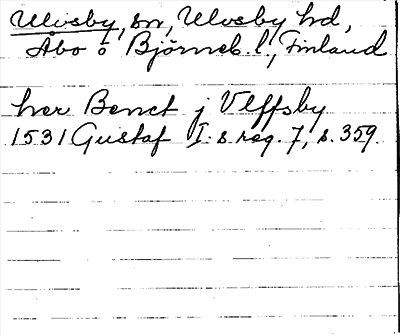 Ulvsby, sn, Ulvsby hd,
Åbo o Björneb. l., Finland
her Benct j Vlffsby
1531 Gustaf I:s reg. 7, s. 359.